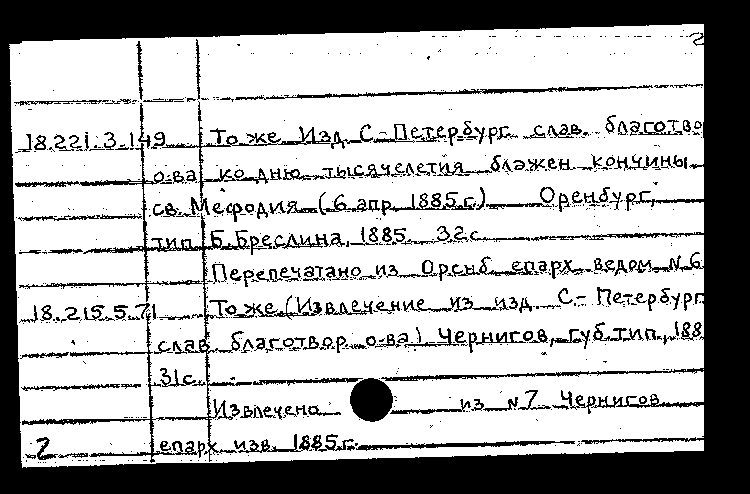 2
18.221.3.149 То же Изд. С.-Петербург. слав. благотво
о-ва ко дню тысячелетия блажен. кончины
св. Мефодия (6 апр. 1885 г.) Оренбург,
тип. Б. Бреслина, 1885. 32 с.
Перепечатано из Оренб. епарх. ведом. №6
18.215.5.71 То же (Извлечение из изд. С.-Петербург.
слав. благотвор. о-ва) Чернигов, губ. тип., 188
31 с.
Извлечено из №7 Чернигов.
2 епарх. изв. 1885 г.